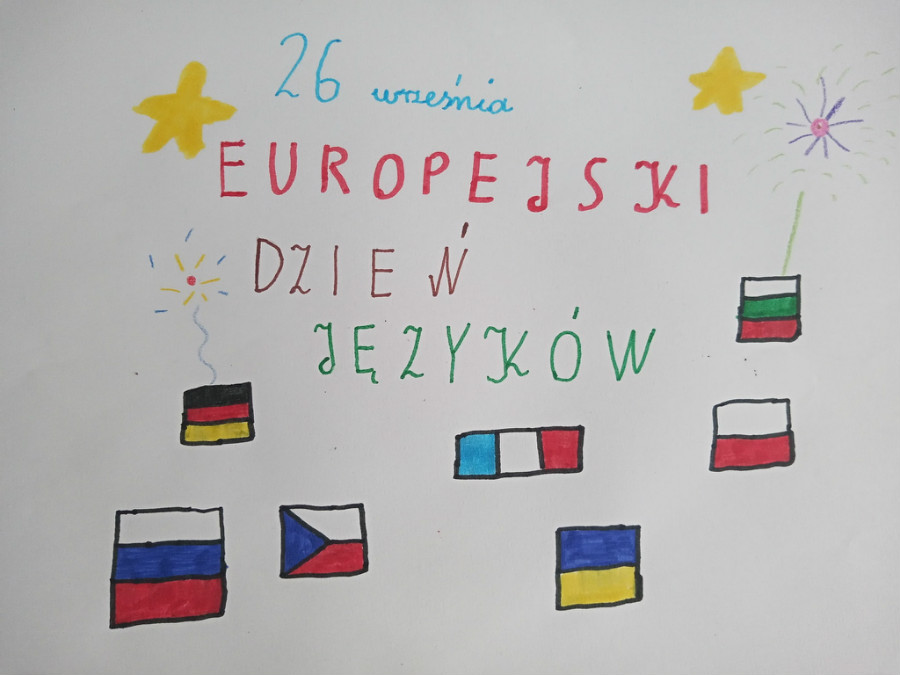 26 września
EUROPEJSKI
DZIEŃ
JĘZYKÓW